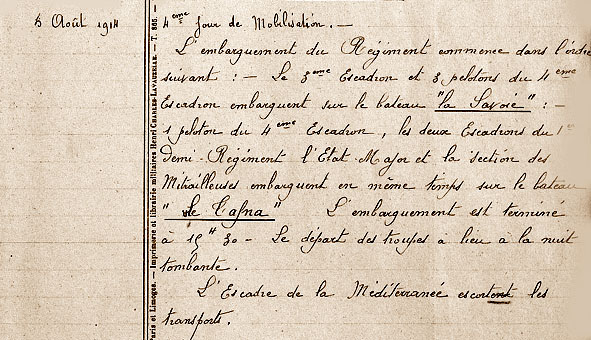 5 Août 1914
4eme Jour de Mobilisation. —
L'embarquement du Régiment commence dans l'ordre
suivant : — Le 3eme Escadron et 3 pelotons du 4eme
Escadron embarquent sur le bateau "la Savoie" : —
1 peloton du 4eme Escadron, les deux Escadrons du 1er
demi-Régiment l'Etat-Major et la section des
Mitrailleuses embarquent en même temps sur le bateau
" le Tafna " L'embarquement est terminé
à 15H 30 - Le départ des troupes à lieu à la nuit
tombante.
L'Escadre de la Méditerranée escortent les
transports.
Paris et Limoges. — Imprimerie et librairie militaires Henri CHARLES-LAVAUZELLE. — T. 665. —